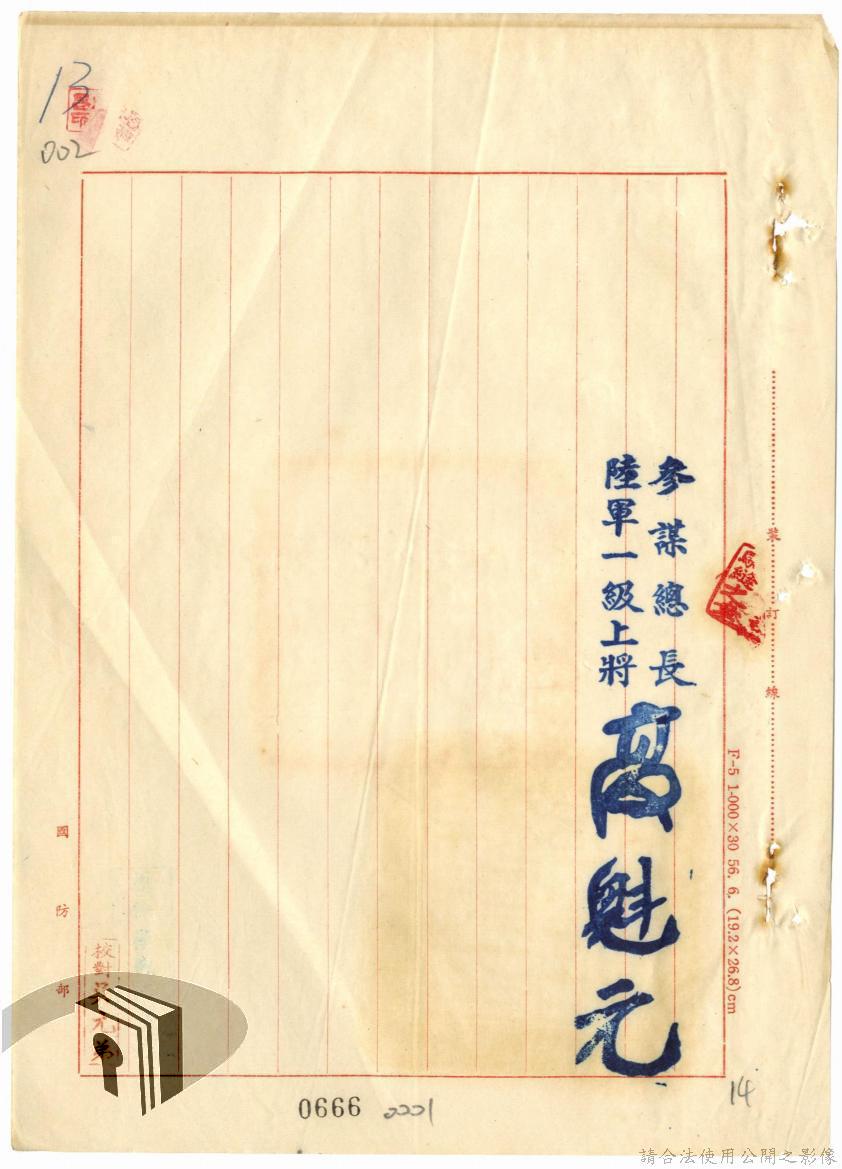 13
002
裝訂線
F-5 1-000×30 56. 6. (19.2×26.8)cm
參謀總長
陸軍一級上將
高魁元
國防部
校對
0666 0001
14
請合法使用公開之影像